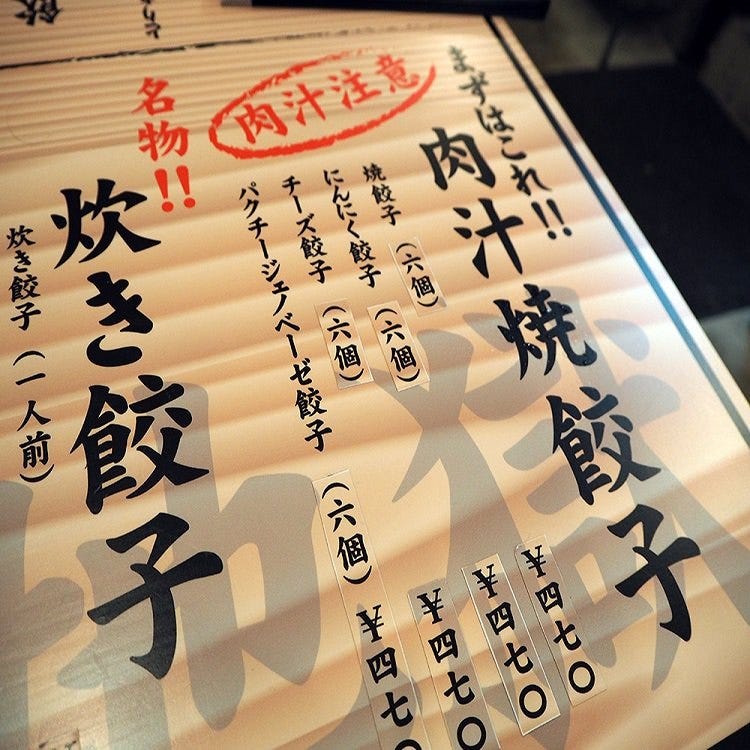 まずはこれ!!
肉汁焼餃子
肉汁注意
焼餃子(六個)¥四七〇
にんにく餃子(六個)¥四七〇
チーズ餃子(六個)¥四七〇
パクチージェノベーゼ餃子(六個)¥四七
名物!!
炊き餃子
炊き餃子(一人前)